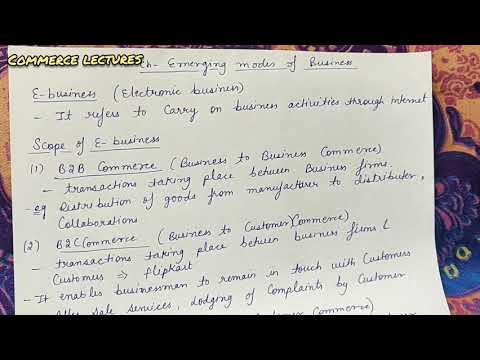 COMMERCE LECTURES
Ch- Emerging modes of Business
E-business (Electronic business)
- It refers to Carry on business activities through internet
Scope of E-business
(1) B2B Commerce (Business to Business Commerce)
- transactions taking place between Business firms.
- eg Distribution of goods from manufacturer to distributer,
Collaborations
(2) B2C Commerce (Business to Customer Commerce)
- transactions taking place between business firms &
Customers ⇒ flipkart
- It enables businessman to remain in touch with Customers
After sale services, lodging of Complaints by Customer
Customer Commerce)